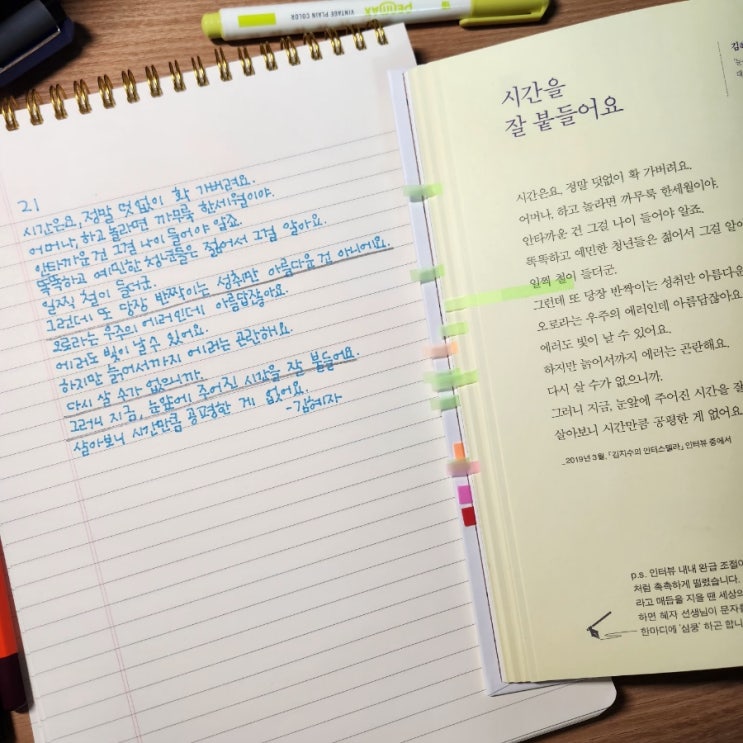 Penmax
VINTAGE PLAIN COLOR
21
시간은요, 정말 덧없이 확 가버려요.
어머나, 하고 놀라면 까무룩 한세월이야.
안타까운 건 그걸 나이 들어야 알죠.
똑똑하고 예민한 청년들은 젊어서 그걸 알아요.
일찍 철이 들더군.
그런데 또 당장 반짝이는 성취만 아름다운 건 아니에요.
오로라는 우주의 에러인데 아름답잖아요.
에러도 빛이 날 수 있어요.
하지만 늙어서까지 에러는 곤란해요.
다시 살 수가 없으니까.
그러니 지금, 눈앞에 주어진 시간을 잘 붙들어요.
살아보니 시간만큼 공평한 게 없어요.
-김혜자
시간을
잘 붙들어요
시간은요, 정말 덧없이 확 가버려요.
어머나, 하고 놀라면 까무룩 한세월이야.
안타까운 건 그걸 나이 들어야 알죠.
똑똑하고 예민한 청년들은 젊어서 그걸
일찍 철이 들더군.
그런데 또 당장 반짝이는 성취만 아름다운
오로라는 우주의 에러인데 아름답잖아요
에러도 빛이 날 수 있어요.
하지만 늙어서까지 에러는 곤란해요.
다시 살 수가 없으니까.
그러니 지금, 눈앞에 주어진 시간을 잘
살아보니 시간만큼 공평한 게 없어요
_2019년 3월, 「김지수의 인터스텔라」 인터뷰 중에서
p.s. 인터뷰 내내 완급 조절이
처럼 촉촉하게 떨렸습니다.
라고 매듭을 지을 땐 세상의
하면 혜자 선생님이 문자를
한마디에 '심쿵' 하곤 합니